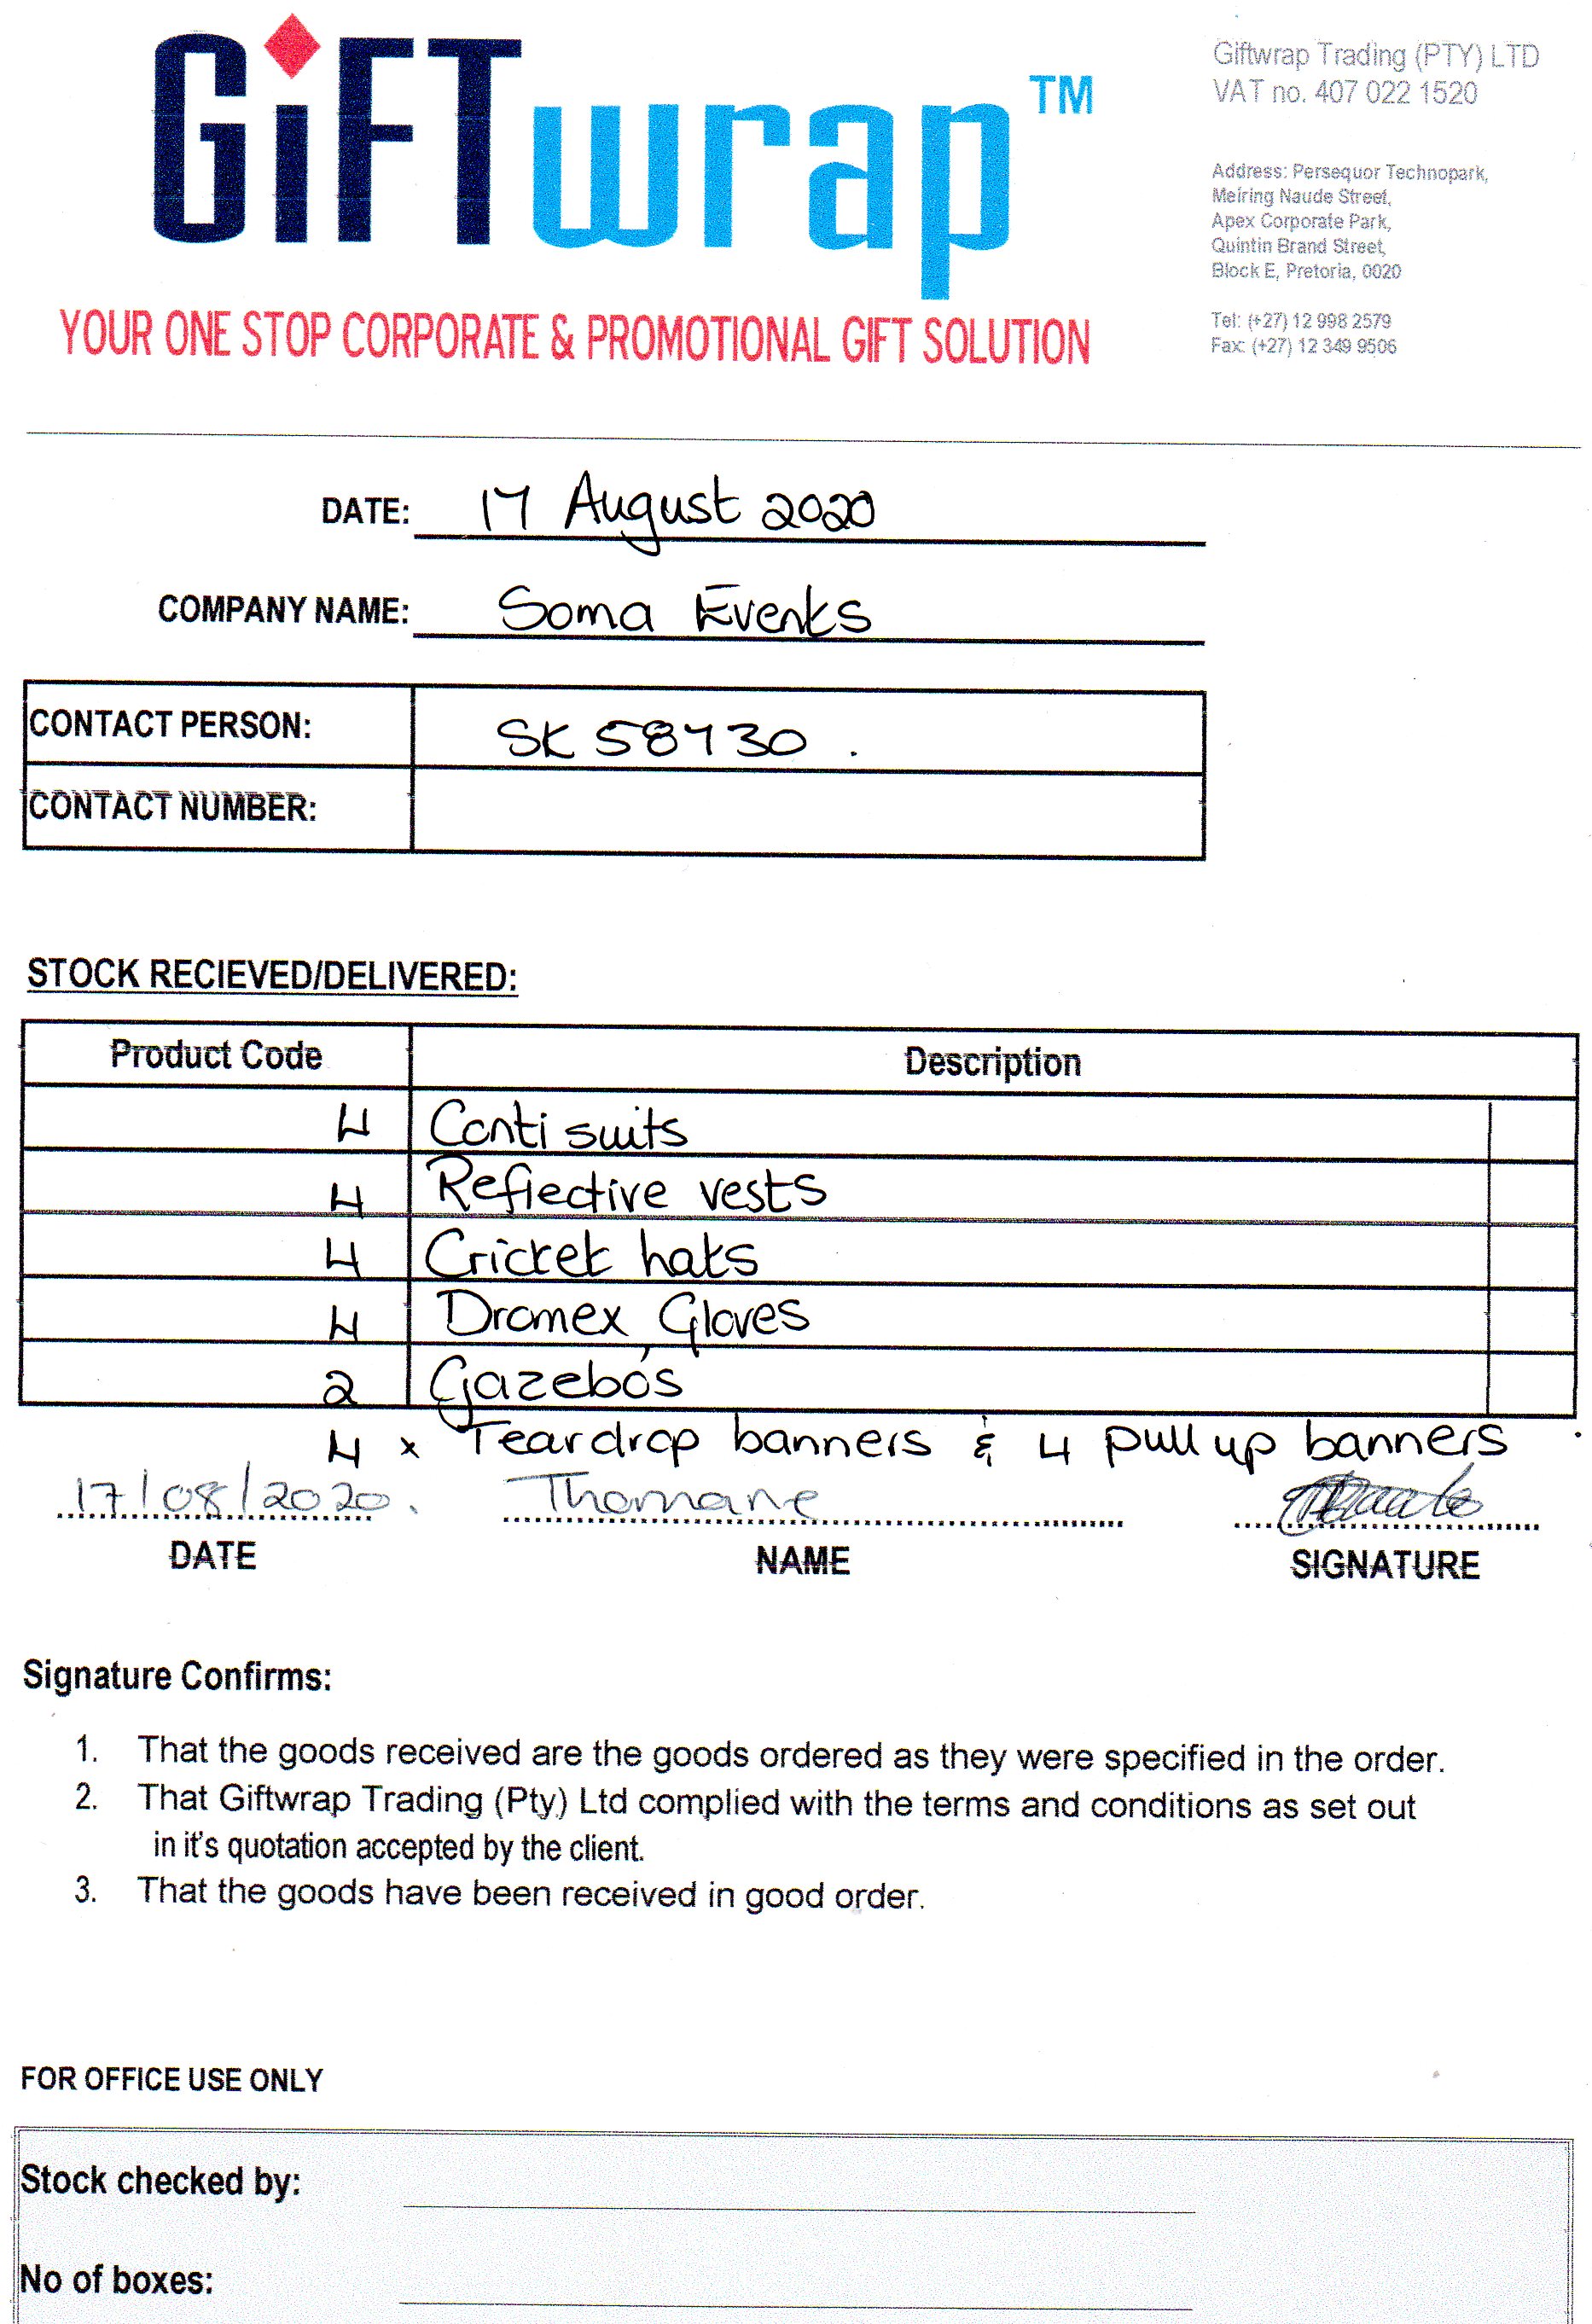 GiFTwrap™
YOUR ONE STOP CORPORATE & PROMOTIONAL GIFT SOLUTION
Giftwrap Trading (PTY) LTD
VAT no. 407 022 1520
Address: Persequor Technopark,
Meiring Naude Street,
Apex Corporate Park,
Quintin Brand Street,
Block E, Pretoria, 0020
Tel: (+27) 12 998 2579
Fax: (+27) 12 349 9506
DATE: 17 August 2020
COMPANY NAME: Soma Events
CONTACT PERSON: SK 58730 .
CONTACT NUMBER:
STOCK RECIEVED/DELIVERED:
Product Code Description
4 Conti suits
4 Reflective vests
4 Cricket hats
4 Dromex Gloves
2 Gazebo's
4 x Teardrop banners & 4 pull up banners.
17/08/2020. Thomane
DATE NAME SIGNATURE
Signature Confirms:
1. That the goods received are the goods ordered as they were specified in the order.
2. That Giftwrap Trading (Pty) Ltd complied with the terms and conditions as set out
in it's quotation accepted by the client.
3. That the goods have been received in good order.
FOR OFFICE USE ONLY
Stock checked by:
No of boxes: